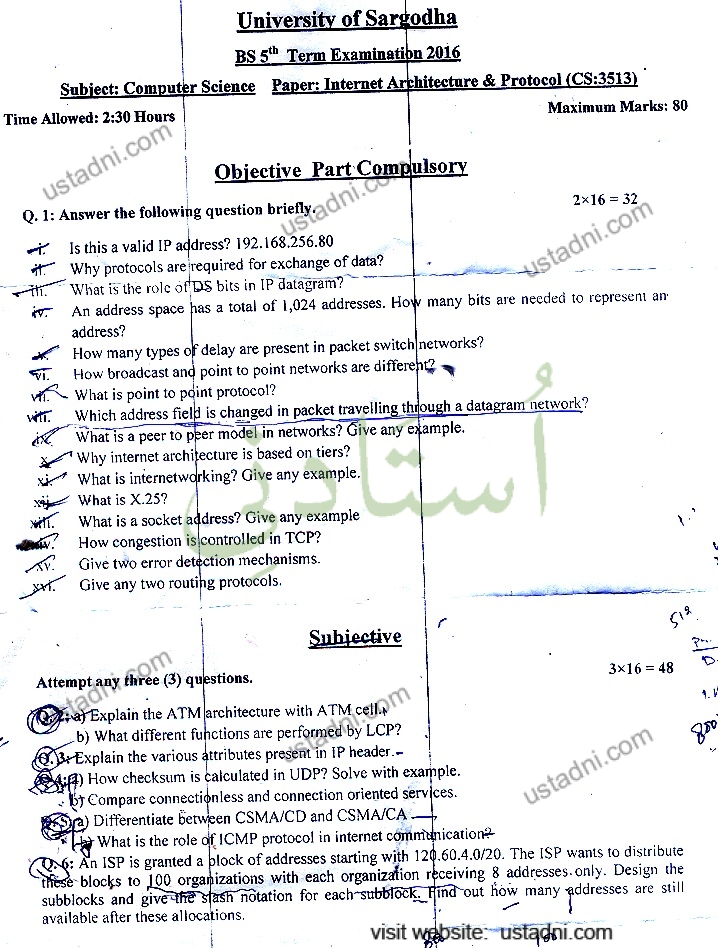 University of Sargodha
BS 5th Term Examination 2016
Subject: Computer Science Paper: Internet Architecture & Protocol (CS:3513)
Time Allowed: 2:30 Hours Maximum Marks: 80
Objective Part Compulsory
Q. 1: Answer the following question briefly. 2×16 = 32
i. Is this a valid IP address? 192.168.256.80
ii. Why protocols are required for exchange of data?
iii. What is the role of DS bits in IP datagram?
iv. An address space has a total of 1,024 addresses. How many bits are needed to represent an
address?
v. How many types of delay are present in packet switch networks?
vi. How broadcast and point to point networks are different?
vii. What is point to point protocol?
viii. Which address field is changed in packet travelling through a datagram network?
ix. What is a peer to peer model in networks? Give any example.
x. Why internet architecture is based on tiers?
xi. What is internetworking? Give any example.
xii. What is X.25?
xiii. What is a socket address? Give any example
xiv. How congestion is controlled in TCP?
xv. Give two error detection mechanisms.
xvi. Give any two routing protocols.
استاذنی
512
Subjective
3×16 = 48
Attempt any three (3) questions.
Q.2: a) Explain the ATM architecture with ATM cell.
b) What different functions are performed by LCP?
800
Q.3: Explain the various attributes present in IP header.
Q.4: a) How checksum is calculated in UDP? Solve with example.
b) Compare connectionless and connection oriented services.
Q.5: a) Differentiate between CSMA/CD and CSMA/CA
b) What is the role of ICMP protocol in internet communication?
Q. 6: An ISP is granted a block of addresses starting with 120.60.4.0/20. The ISP wants to distribute
these blocks to 100 organizations with each organization receiving 8 addresses only. Design the
subblocks and give the slash notation for each subblock. Find out how many addresses are still
available after these allocations.
visit website: ustadni.com
ustadni.com
ustadni.com
ustadni.com
ustadni.com
ustadni.com
ustadni.com